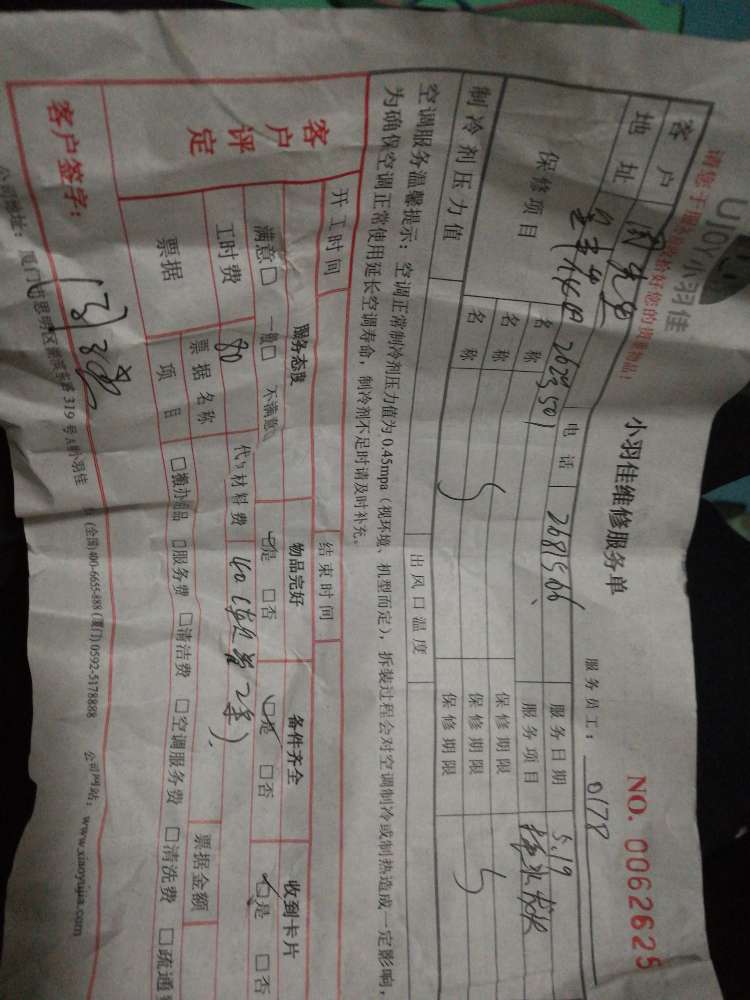 请您于服务前保管好您的贵重物品!
UJOY小羽佳
小羽佳维修服务单
NO. 0062625
服务员工: 0178
客户 电话 2681566 服务日期 5.19
地址 2623,501 服务项目
保修项目 名称 保修期限
名称 保修期限
名称 保修期限
制冷剂压力值 出风口温度
空调服务温馨提示: 空调正常制冷剂压力值为0.45mpa (视环境、机型而定), 拆装过程会对空调制冷或制热造成一定影响,
为确保空调正常使用延长空调寿命, 制冷剂不足时请及时补充。
开工时间 结束时间
客户评定 服务态度 物品完好 备件齐全 收到卡片
满意□ 一般□ 不满意 ☑是 □否 ☑是 □否 ☑是 □否
工时费 80 代付材料费 160 (软管2条)
票据 票据名称 票据金额
项目 □搬办用品 □服务费 □清洁费 □空调服务费 □清洗费 □疏通
客户签字:
公司地址: 厦门市思明区 319号 小羽佳 (全国)400-6655-888 (厦门)0592-5178888 公司网站: www.xiaoyujia.com